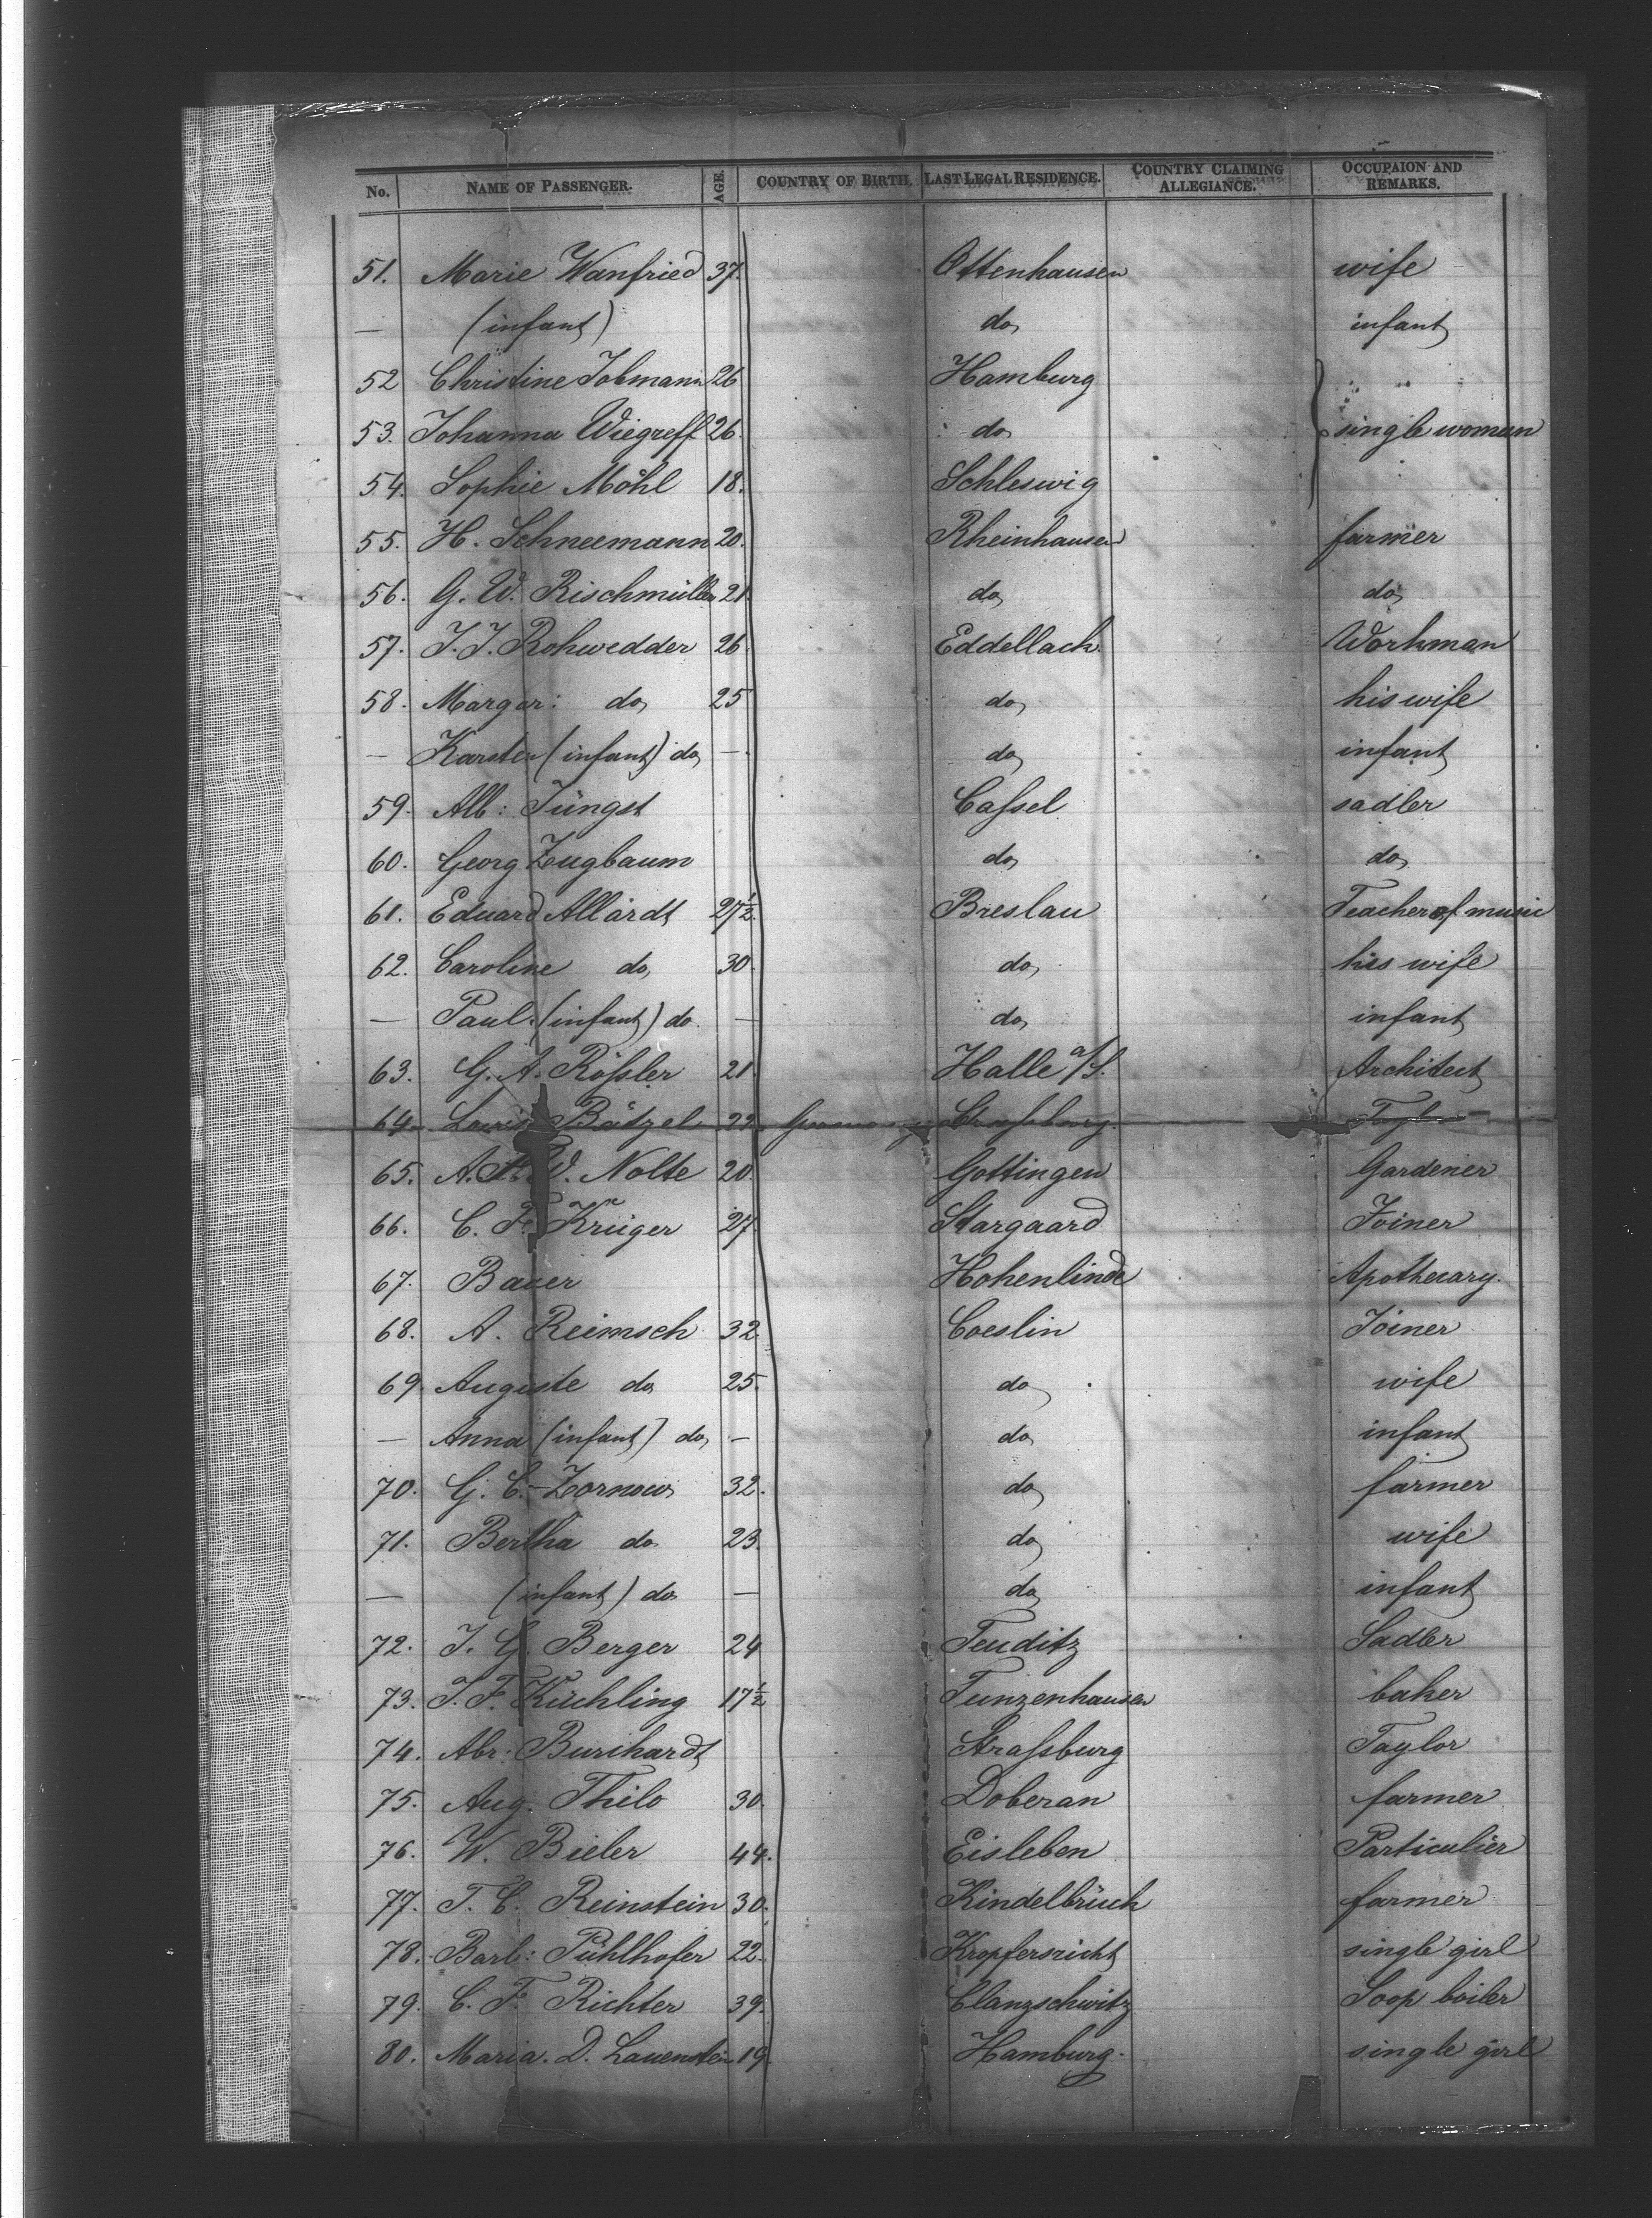 No. NAME OF PASSENGER. AGE. COUNTRY OF BIRTH. LAST LEGAL RESIDENCE. COUNTRY CLAIMING ALLEGIANCE. OCCUPAION AND REMARKS.
51. Marie Wanfried 37. Ottenhausen wife
— (infant) do infant
52 Christine Tobmann 26 Hamburg
53. Johanna Wiegreff 26. do single woman
54. Sophie Möhl 18. Schleswig
55. H. Schneemann 20. Rheinhausen farmer
56. G. W. Rischmüller 21. do do
57. J. J. Rohwedder 26 Eddellach. Workman
58. Margar: do 25 do his wife
— Karsten (infant) do — do infant
59. Alb: Jüngst Caſsel sadler
60. Georg Zugbaum do do
61. Eduard Allardt 27½. Breslau Teacher of music
62. Caroline do 30. do his wife
— Paul (infant) do. — do infant
63. G. A. Röſsler 21. Halle a/S. Architect
64. Louis Bätzel 22. Straſsburg.
65. A. W. Nolte 20. Gottingen Gardener
66. C. F. Krüger 27 Stargaard Joiner
67. Bauer Hohenlinde Apothecary.
68. A. Reimsch 32. Coeslin Joiner
69. Auguste do 25. do wife
— Anna (infant) do — do infant
70. G. C. Zornow 32. do farmer
71. Bertha do 23. do wife
— (infant) do — do infant
72. J. G. Berger 24 Teuditz Sadler
73. J. F. Küchling 17½ Tunzenhausen baker
74. Abr: Burchardt Straſsburg Taylor
75. Aug. Thilo 30. Doberan farmer
76. W. Bieler 44. Eisleben Particulier
77. T. C. Reinstein 30. Kindelbrück farmer
78. Barb: Pühlhofer 22. Kropfersricht single girl
79. C. F. Richter 39. Clanzschwitz Soop boiler
80. Maria. D. Lauenstein 19. Hamburg. single girl